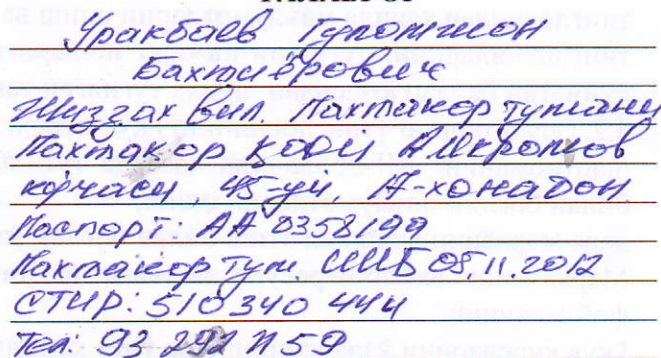 Уракбаев Ғуломжон
Бахтиёрович
Жиззах вил. Пахтакор тумани
Пахтакор қўрғ А.Икромов
кўчаси 45-уй 7-хонадон
Паспорт. АА 0358199
Пахтакор тум ИИБ 05.11.2012
СТИР: 510 340 444
Тел: 93